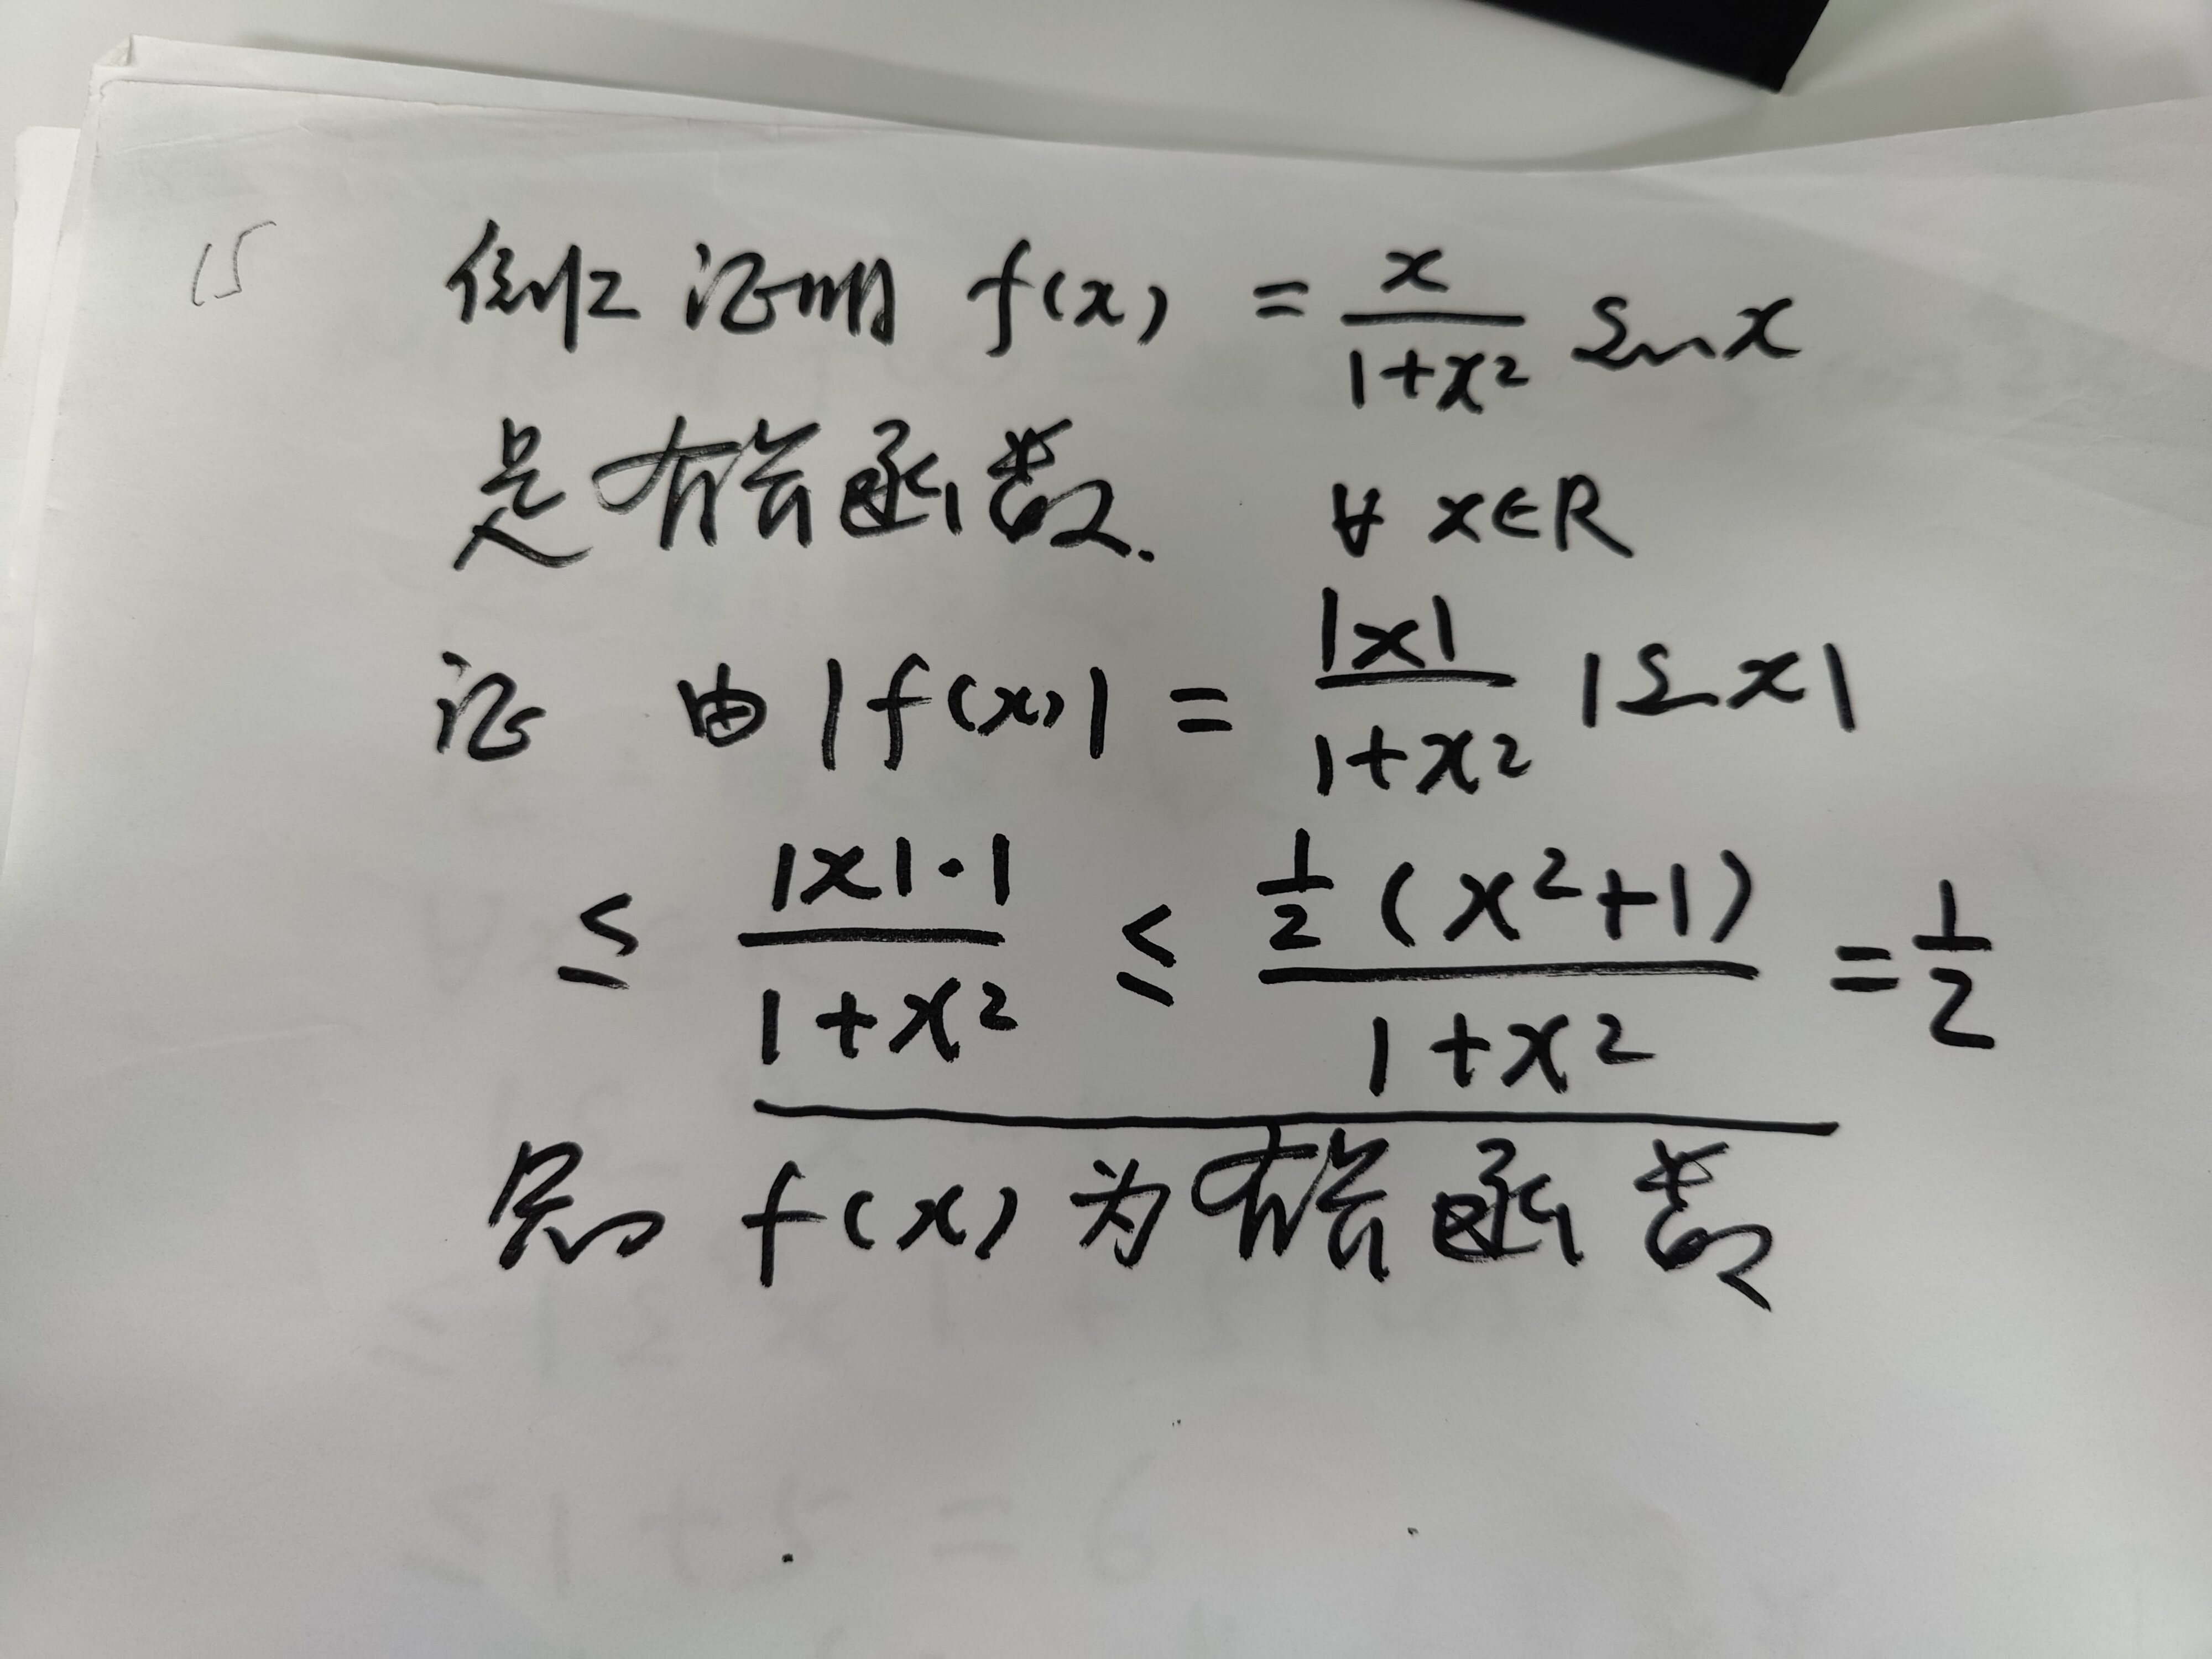 15 例2 证明 f(x) = x/(1+x²) sin x
是有界函数. ∀ x∈R
证 由 |f(x)| = |x|/(1+x²) |sin x|
≤ |x|·1/(1+x²) ≤ ½(x²+1)/(1+x²) = ½
知 f(x) 为有界函数